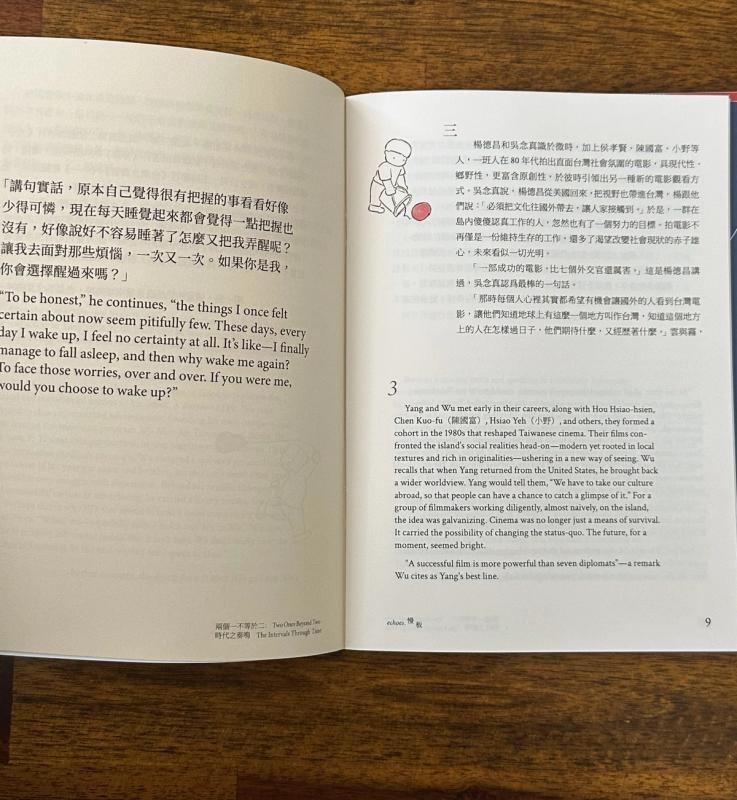 「講句實話，原本自己覺得很有把握的事看看好像
少得可憐，現在每天睡覺起來都會覺得一點把握也
沒有，好像說好不容易睡著了怎麼又把我弄醒呢？
讓我去面對那些煩惱，一次又一次。如果你是我，
你會選擇醒過來嗎？」
“To be honest,” he continues, “the things I once felt
certain about now seem pitifully few. These days, every
day I wake up, I feel no certainty at all. It’s like—I finally
manage to fall asleep, and then why wake me again?
To face those worries, over and over. If you were me,
would you choose to wake up?”
兩個一不等於二： Two Ones Beyond Two:
時代之奏鳴 The Intervals Through Time
三
楊德昌和吳念真識於微時，加上侯孝賢、陳國富、小野等
人，一班人在 80 年代拍出直面台灣社會氛圍的電影，具現代性、
鄉野性，更富含原創性，於彼時引領出另一種新的電影觀看方
式。吳念真說，楊德昌從美國回來，把視野也帶進台灣，楊跟他
們說：「必須把文化往國外帶去，讓人家接觸到。」於是，一群在
島內傻傻認真工作的人，忽然也有了一個努力的目標，拍電影不
再僅是一份維持生存的工作，還多了渴望改變社會現狀的赤子雄
心，未來看似一切光明。
「一部成功的電影，比七個外交官還厲害。」這是楊德昌講
過，吳念真認爲最棒的一句話。
「那時每個人心裡其實都希望有機會讓國外的人看到台灣電
影，讓他們知道地球上有這麼一個地方叫作台灣，知道這個地方
上的人在怎樣過日子，他們期待什麼，又經歷著什麼。」雲與霧，
3
Yang and Wu met early in their careers, along with Hou Hsiao-hsien,
Chen Kuo-fu（陳國富）, Hsiao Yeh（小野）, and others, they formed a
cohort in the 1980s that reshaped Taiwanese cinema. Their films con-
fronted the island’s social realities head-on—modern yet rooted in local
textures and rich in originalities—ushering in a new way of seeing. Wu
recalls that when Yang returned from the United States, he brought back
a wider worldview. Yang would tell them, “We have to take our culture
abroad, so that people can have a chance to catch a glimpse of it.” For a
group of filmmakers working diligently, almost naively, on the island,
the idea was galvanizing. Cinema was no longer just a means of survival.
It carried the possibility of changing the status-quo. The future, for a
moment, seemed bright.
“A successful film is more powerful than seven diplomats”—a remark
Wu cites as Yang’s best line.
echoes. 慢板
9